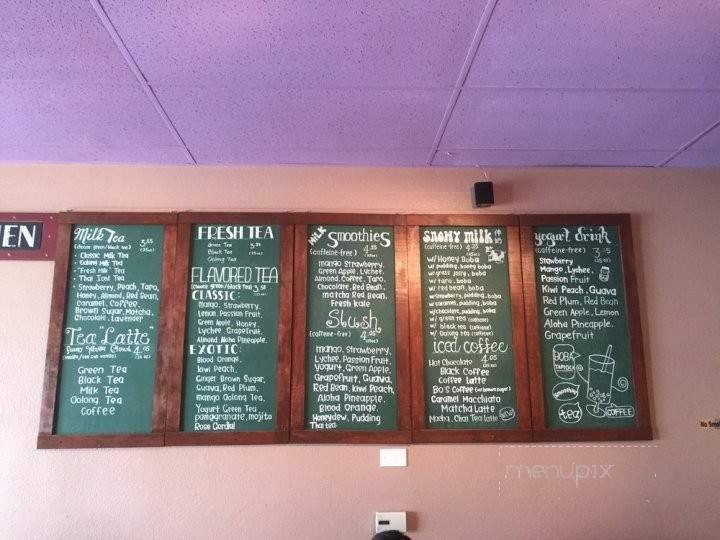 EN
Milk Tea
(choose green/black tea)
- Classic Milk Tea
- Oolong Milk Tea
- "Fresh Milk" Tea
- Thai Iced Tea
- Strawberry, Peach, Taro,
Honey, Almond, Red Bean,
Caramel, Coffee,
Brown Sugar, Matcha,
Chocolate, Lavender
Tea "Latte"
4.05
Green Tea
Black Tea
Milk Tea
Oolong Tea
Coffee
FRESH TEA
Green Tea
Black Tea
Oolong Tea
FLAVORED TEA
(choose green/black tea)
CLASSIC:
Mango, Strawberry,
Lemon, Passion Fruit,
Green Apple, Honey,
Lychee, Grapefruit,
Almond, Aloha Pineapple,
EXOTIC:
Blood Orange,
Kiwi, Peach,
Ginger Brown Sugar,
Guava, Red Plum,
Mango Oolong Tea,
Yogurt Green Tea
Pomegranate, Mojito
Rose Cordial
MILK Smoothies
(caffeine-free)
Mango Strawberry,
Green Apple, Lychee,
Almond, Coffee, Taro,
Chocolate, Red Bean,
Matcha Red Bean,
Fresh Kale
Slush
(caffeine-free)
Mango, Strawberry,
Lychee, Passion Fruit,
Yogurt, Green Apple,
Grapefruit, Guava,
Red Bean, Kiwi, Peach,
Aloha Pineapple,
Blood Orange,
Honeydew, Pudding
Thai tea
SNOWY MILK
(caffeine-free)
w/ Honey Boba
w/ pudding, honey boba
w/ grass jelly, boba
w/ taro, boba
w/ red bean, boba
w/ strawberry, pudding, boba
w/ caramel, pudding, boba
w/ chocolate, pudding, boba
w/ green tea (caffeine)
w/ black tea (caffeine)
w/ oolong tea (caffeine)
iced coffee
Hot Chocolate
Black Coffee
Coffee Latte
BO's Coffee (w/ brown sugar)
Caramel Macchiato
Matcha Latte
Mocha, Chai Tea Latte
yogurt drink
(caffeine-free)
Strawberry
Mango, Lychee,
Passion Fruit
Kiwi Peach, Guava
Red Plum, Red Bean
Green Apple, Lemon
Aloha Pineapple,
Grapefruit
BOBA
TAPIOCA
tea
COFFEE
No Smo
menupix